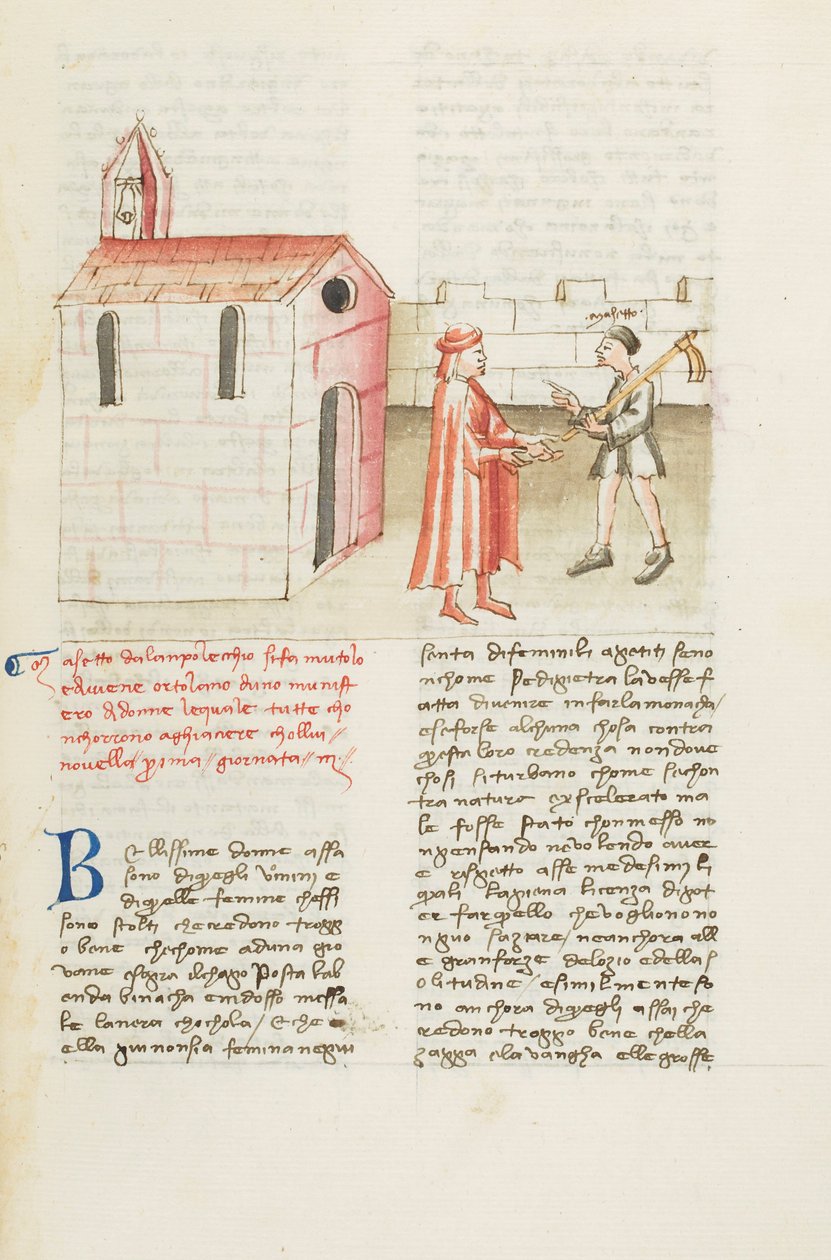 ·masetto·
Masetto dalanpolecchio sifa mutolo
ediviene ortolano duno munist
ero didonne lequale tutte cho
nchorrono aghiaciere chollui
novella prima giornata iij
Bellissime donne assa
sono diquegli uomini e
diquelle femine cheffi
sono stolti checredono tropp
o bene chechome aduna gio
vane esopra ilchapo posta lab
enda biancha emdosso messa
le lanera chochola / Eche
ella piu nonsia femina nepiu
senta difeminili apetiti seno
nchome sedipietra lavesse f
atta divenire infarlamonacha /
eseforse alchuna chosa contra
questa loro credenza nondove
chosi siturbano chome sechon
tra natura exscelerato ma
le fosse stato chonmesso no
npensando nevolendo aver
e rispetto asse medesimi li
quali lapiena licenza dipot
er farquello chevoglionono
npuo saziare / neanchora all
e granforze delozio edellas
olitudine / esimilmenteso
no anchora diquegli assai che
credono troppo bene chella
zappa elavangha ellegrosse